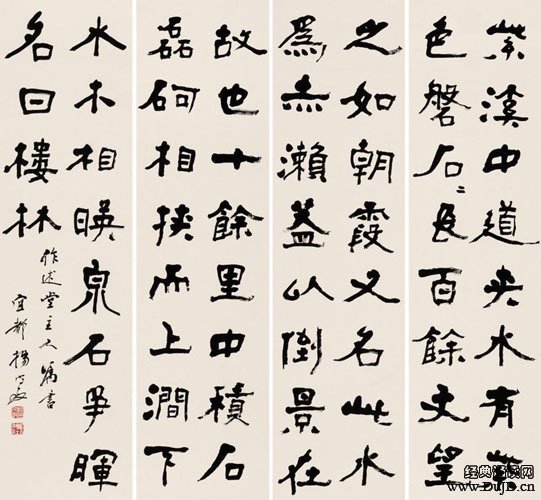 紫溪中道夾水有紫
色磐石〻長百餘丈望
之如朝霞又名此水
爲赤瀨蓋以倒景在
故也十餘里中積石
磊砢相挾而上澗下
水木相暎泉石爭暉
名曰樓林
作述堂主人屬書
宜都楊守敬
www.DuJD.cn